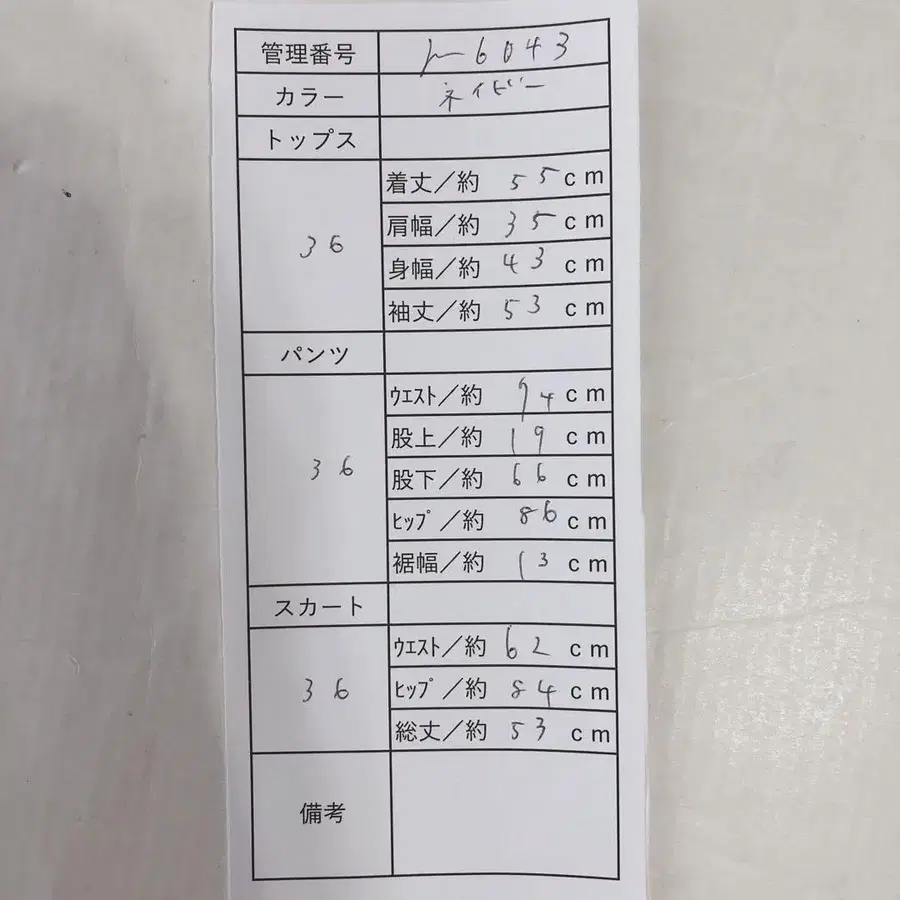 管理番号 6043
カラー ネイビー
トップス
36
着丈／約 55cm
肩幅／約 35cm
身幅／約 43cm
袖丈／約 53cm
パンツ
36
ｳｴｽﾄ／約 74cm
股上／約 19cm
股下／約 66cm
ﾋｯﾌﾟ／約 86cm
裾幅／約 13cm
スカート
36
ｳｴｽﾄ／約 62cm
ﾋｯﾌﾟ／約 84cm
総丈／約 53cm
備考